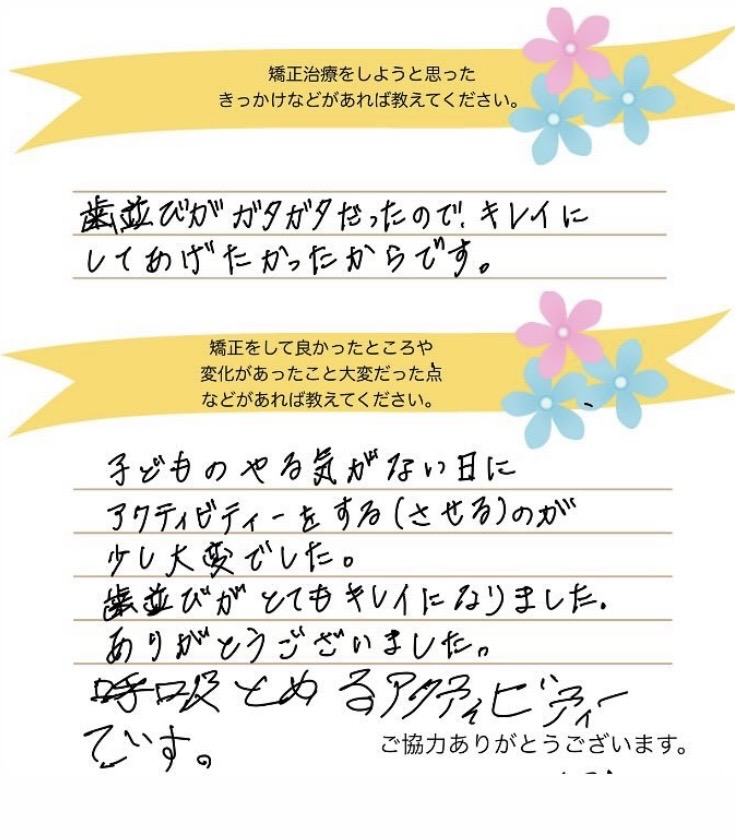 矯正治療をしようと思った
きっかけなどがあれば教えてください。
歯並びがガタガタだったので、キレイに
してあげたかったからです。
矯正をして良かったところや
変化があったこと大変だった点
などがあれば教えてください。
子どものやる気がない日に
アクティビティーをする(させる)のが
少し大変でした。
歯並びがとてもキレイになりました。
ありがとうございました。
呼吸とめるアクティビティー
でいす。
ご協力ありがとうございます。